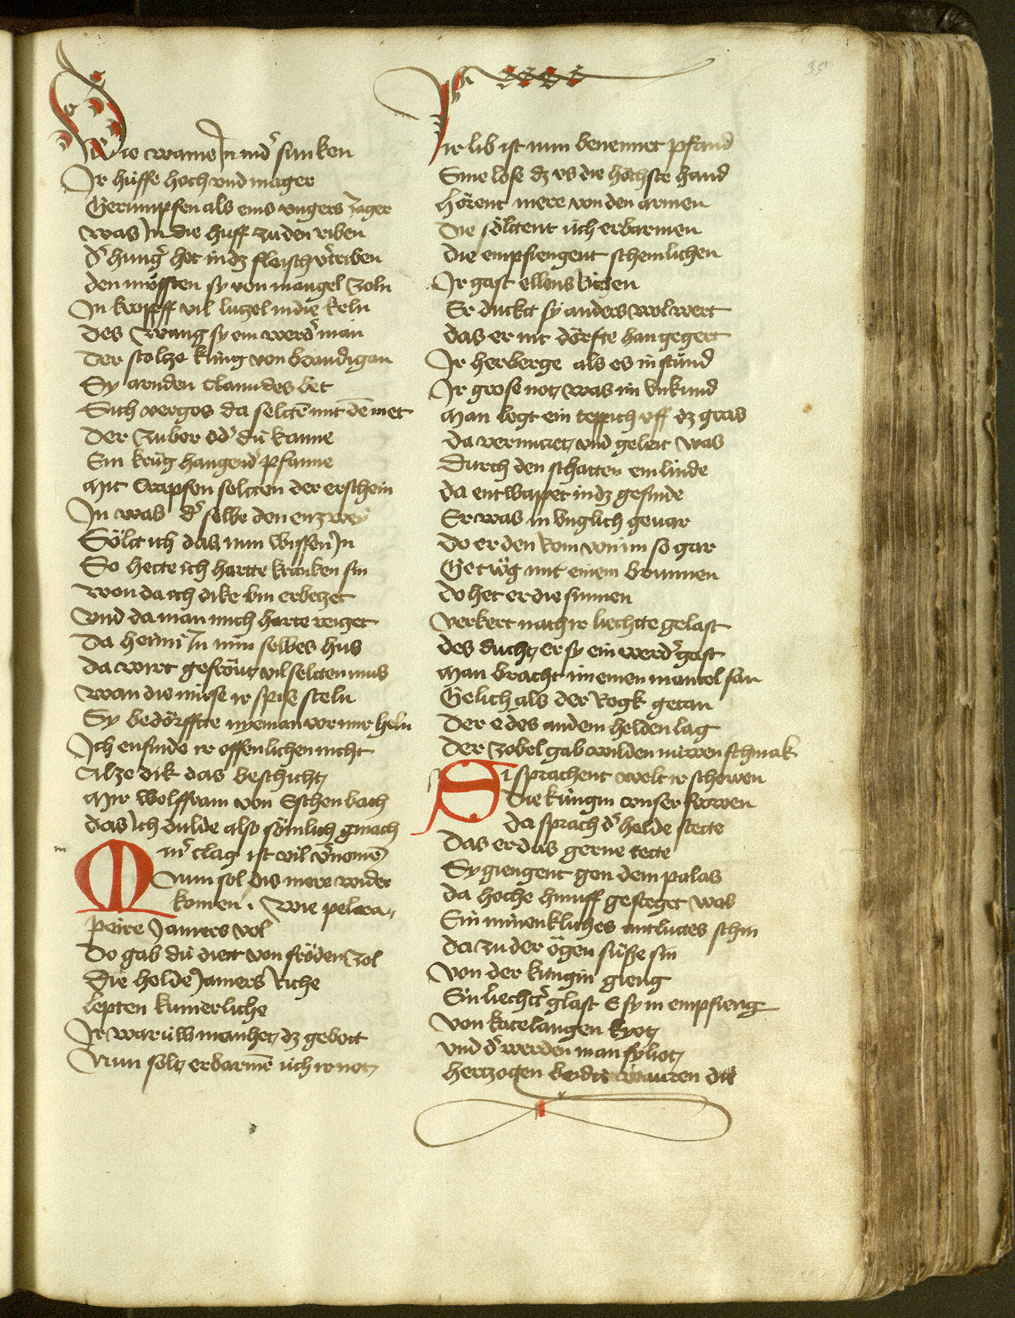 Die wame In nid' sunken
Ir hüffe hoch vnd mager
Gerumpfen als eins vngers zager
was In die huff zu den riben
d' hung' het in dz fleisch v'triben
den müsten sy von mangel zoln
In kropff vil lüzel in die keln
des twang sy ein werd' man
Der stoltze küng von brandigan
Sy arnden Clamides bet
Sich vergos da selten mit dē met
Der zuber od' dü kanne
Ein krüg hangend pfanne
Mit Crapfen selten der erschein
In was d' selbe don enzwey
Sölt ich das nun wissen In
So hette ich hartte kranken sin
won da ich dike bin erbeizet
vnd da man mich herre heizet
Da heim In mim selbes hus
da wirt gefröut vil selten mus
wan die müse ir spise steln
Sy bedörfftte nyeman vor mir heln
Ich enfinde ir offenlichen nicht
Alze dik das beschicht
Mir wolffram von Eschenbach
das Ich dulde also sömlich gmach
Min' clag ist vil v'nomē
Nun sol dis mere wider
komen . wie pelrea-
peire Jamers vol
Do gab dü diett von fröden zol
Die helde Jamers riche
lepten kumerliche
Ir war üw manheit dz gebott
Nun soltz erbarmē üch ir not
Ir lib ist nun benennet pfand
Sine löse dz vs die höchste hand
hörent mere von den armen
Die söltent üch erbarmen
die empfiengent schemlichen
Ir gast ellens richen
Er duckt sy anders wol wert
das er nit dörfte han gegert
Ir herberge als es in stünd
Ir grose not was im vnkund
Man legt ein teppich vff dz gras
da vermuret vnd geleit was
Durch den schatten ein linde
da entwapet in dz gesinde
Er was in vnglich gevar
do er den kom von im so gar
Getwüg mit einem brunnen
do het er die sunnen
verkert nach ir liechtte gelast
des ducht er sy ein werd' gast
Man bracht im einen mantel sān
Gelich als der Rogk getan
Der e des an dem helden lag
Der zobel gab wilden nüwen schmak
Si sprachent welt ir schowen
Die küngin vnser frowen
da sprach d' helde stette
Das er das gerne tette
Sy giengent gen dem palas
da hoche hinuff gesteget was
Ein minenkliches antlutes schin
da zu der ögen süsse sin
Von der küngin gieng
Ein liecht' glast E sy in empfieng
von katelangen kyot
vnd d' werden man fyliot
hertzogen beidü waren die